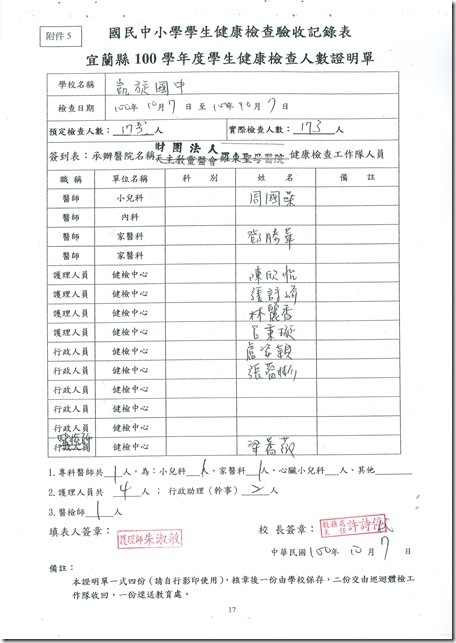 附件 5
國民中小學學生健康檢查驗收記錄表
宜蘭縣 100 學年度學生健康檢查人數證明單
學校名稱 凱旋國中
檢查日期 100年 10月 7 日 至 100年 10月 7 日
預定檢查人數： 175 人 實際檢查人數： 173 人
簽到表：承辦醫院名稱 財團法人天主教靈醫會羅東聖母醫院 健康檢查工作隊人員
職 稱 單位名稱 科 別 姓 名 備 註
醫師 小兒科 周國榮
醫師 內科
醫師 家醫科 鄧勝華
醫師 家醫科
護理人員 健檢中心 陳欣怡
護理人員 健檢中心 張詩
護理人員 健檢中心 林麗香
護理人員 健檢中心 呂秉
行政人員 健檢中心 盧姿穎
行政人員 健檢中心 張
行政人員 健檢中心
行政人員 健檢中心
行政人員 健檢中心
行政人員 健檢中心 梁薇
1.專科醫師共 1 人，為：小兒科 1 人、家醫科 1 人、心臟小兒科 人、其他
2.護理人員共 4 人； 行政助理（幹事） 2 人
3.醫檢師 1 人
填表人簽章： 護理師朱淑敏 校 長簽章： 教務處主任許詩偉
中華民國 100年 10 月 7 日
備註：
本證明單一式四份（請自行影印使用），核章後一份由學校保存，二份交由巡迴體檢工
作隊收回，一份逕送教育處。
17